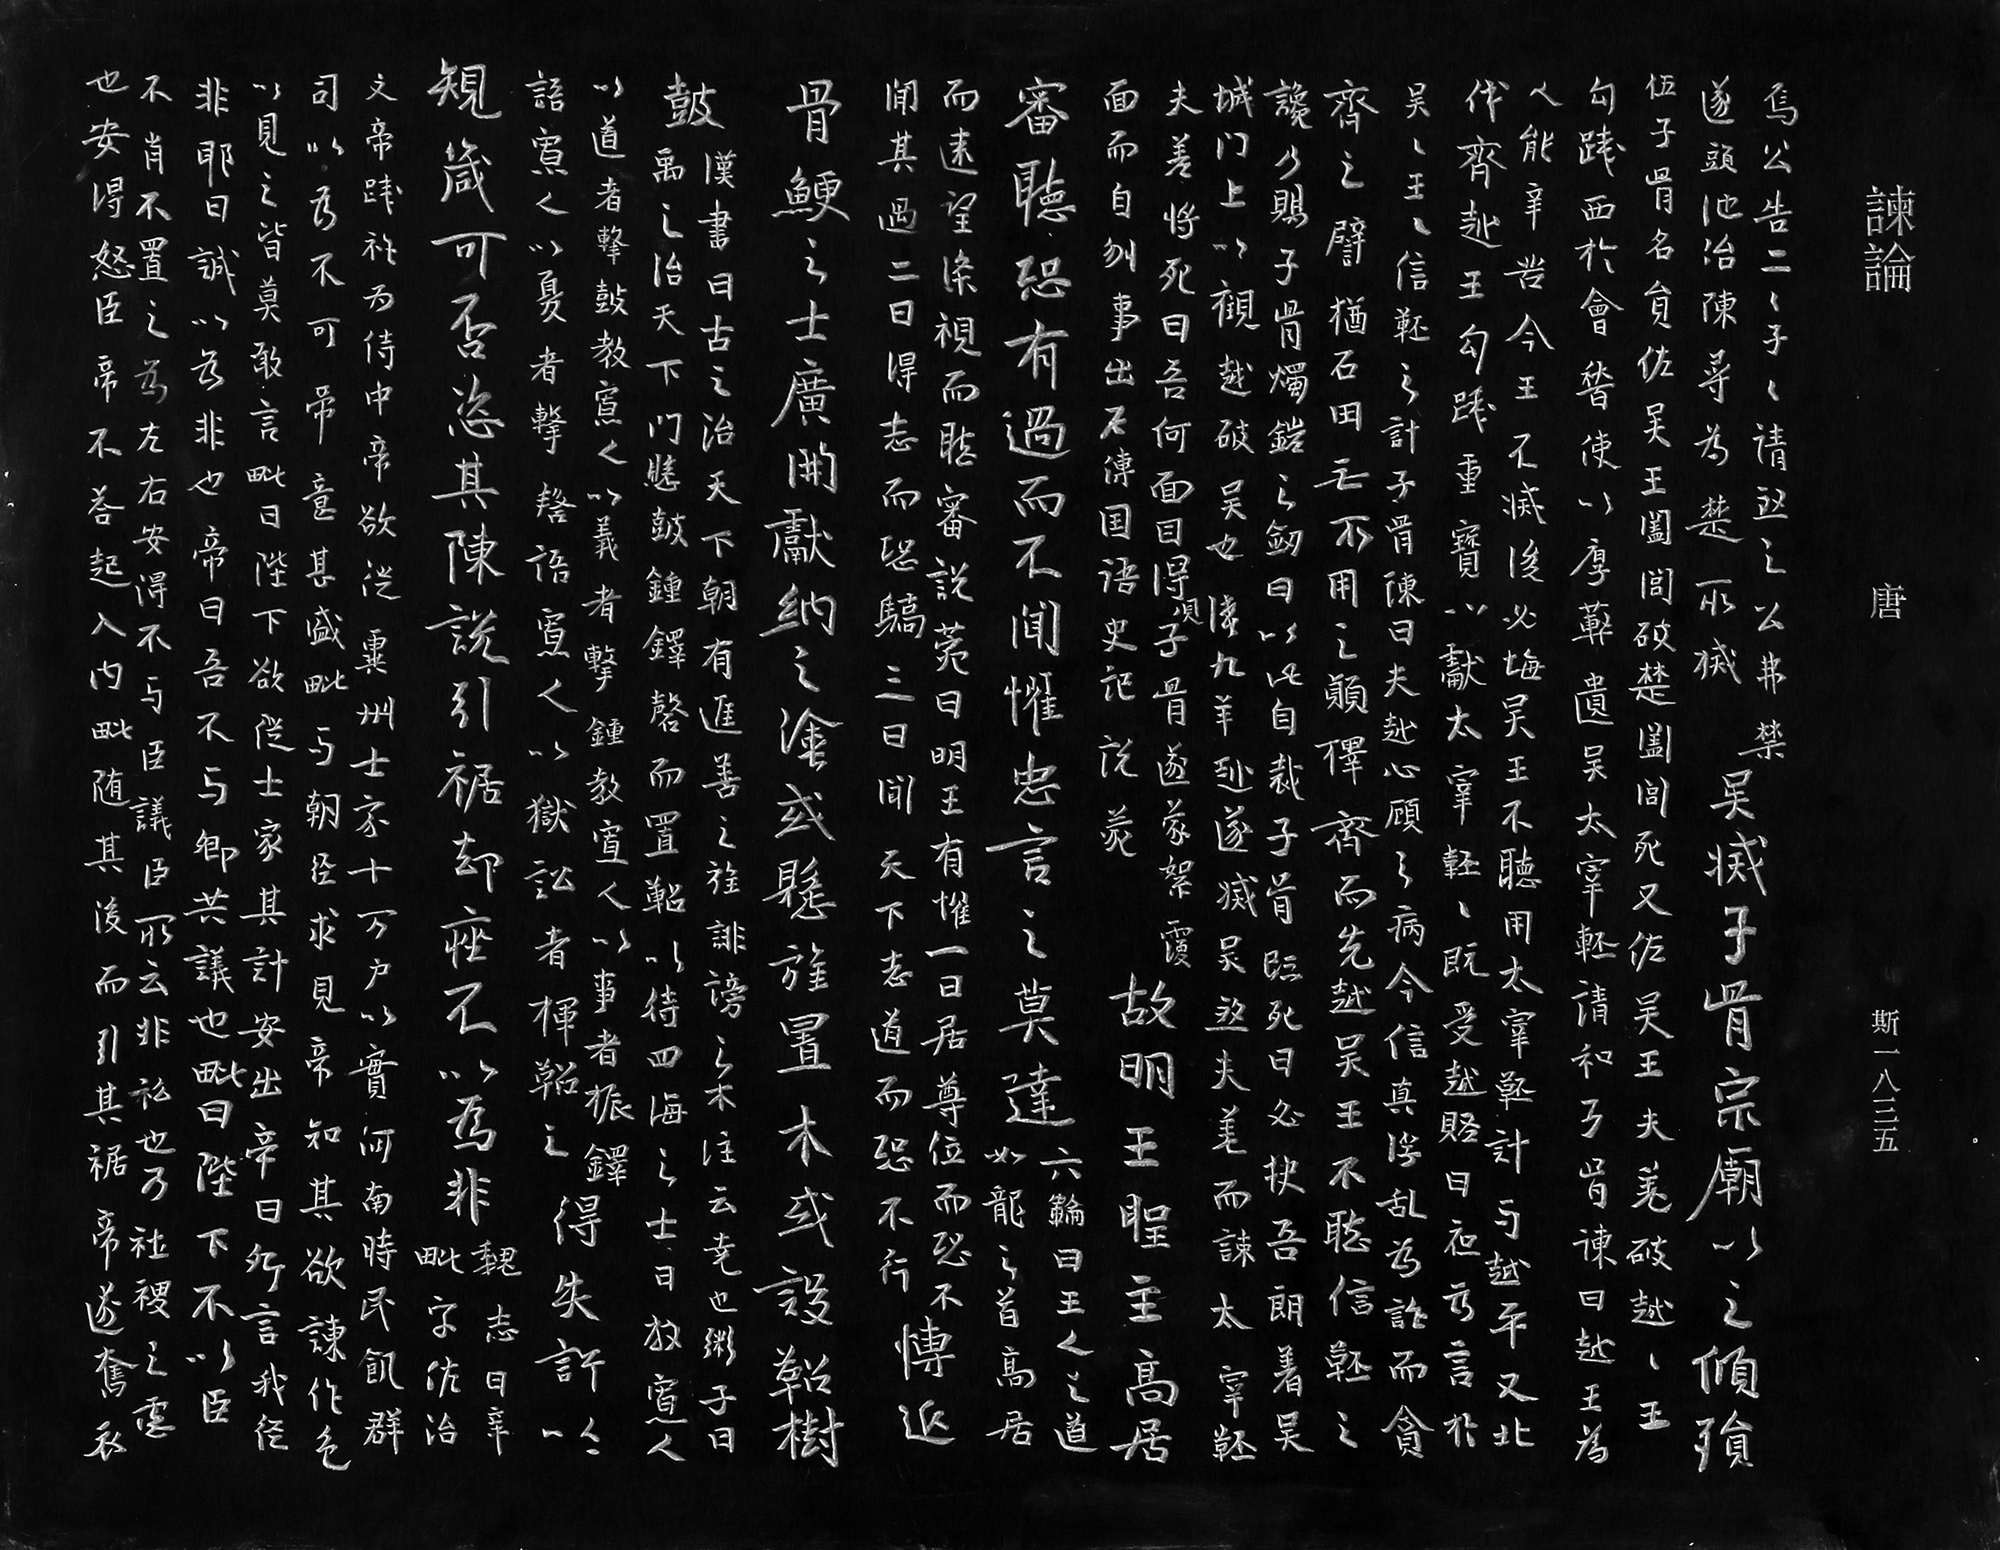 諫論 唐 斯一八三五
焉公告二〻子〻請煞之公弗禁
遂頭池治陳尋為楚所滅
吳滅子胥宗廟以之傾殞
伍子胥名員佐吳王闔閭破楚闔閭死又佐吳王夫差破越〻王
勾踐西於會稽使以厚幣遺吳太宰嚭請和子胥諫曰越王為
人能辛苦今王不滅後必悔吳王不聽用太宰嚭計与越平又北
伐齊越王勾踐重寶以獻太宰嚭〻既受越賂曰夜為言於
吳〻王〻信嚭之計子胥陳曰夫越心頋之病今信真浮乱為詐而貪
齊之譬猶石田無所用之願釋齊而先越吳王不聽信嚭之
讒乃賜子胥燭鏤之劒曰以此自裁子胥臨死曰必抉吾眼著吳
城門上以觀越破吳也後九年越遂滅吳煞夫差而誅太宰嚭
夫差將死曰吾何面目得見子胥遂蒙絮覆
面而自刎事出左傳国語史記說菀
故明王聖主高居
審聽恐有過而不聞懼忠言之莫達
六韜曰王人之道
如龍之首高居
而遠望深視而聽審說菀曰明王有懼一曰居尊位而恐不
聞其過二曰得志而恐驕三曰聞天下志道而恐不行
博延
骨鯁之士廣開獻納之塗或懸旌置木或設鞀樹
鼓
漢書曰古之治天下朝有進善之旌誹謗之木注云堯也鬻子曰
禹之治天下門懸鼓鍾鐸磬而置鞀以待四海之士曰教寡人
以道者擊鼓教寡人以義者擊鍾教寡人以事者振鐸
語寡人以憂者擊磬語寡人以獄訟者揮鞀之
得失許以
規箴可否恣其陳說引裾却座不以為非
魏志曰辛
毗字佐治
文帝踐祚為侍中帝欲徙冀州士家十万户以實河南時民飢群
司以為不可帝意甚盛毗与朝臣求見帝知其欲諫作色
以見之皆莫敢言毗曰陛下欲徙士家其計安出帝曰所言我徙
非耶曰誠以為非也帝曰吾不与卿共議也毗曰陛下不以臣
不肖不置之為左右安得不与臣議臣所云非私也乃社稷之慮
也安得怒臣帝不荅起入內毗随其後而引其裾帝遂奮衣